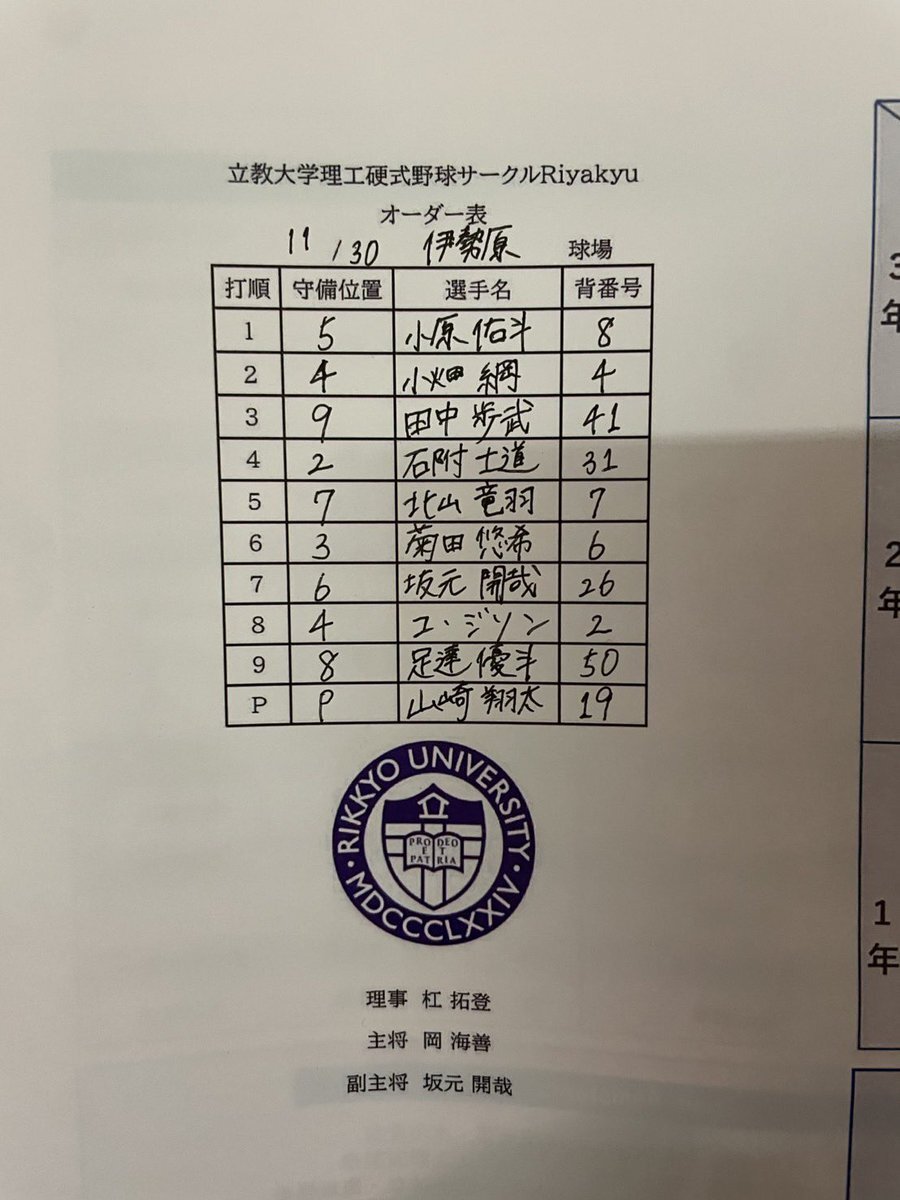 立教大学理工硬式野球サークルRiyakyu
オーダー表
11/30 伊勢原 球場
打順 守備位置 選手名 背番号
1 5 小原 佑斗 8
2 4 小畑 綱 4
3 9 田中 歩武 41
4 2 石附 士道 31
5 7 北山 竜羽 7
6 3 菊田 悠希 6
7 6 坂元 開哉 26
8 4 コ・ジソン 2
9 8 足達 優斗 50
P P 山崎 翔太 19
RIKKYO UNIVERSITY
PRO DEO
E T
PAT RIA
MDCCCLXXIV
理事 杠 拓登
主将 岡 海善
副主将 坂元 開哉
3年
2年
1年